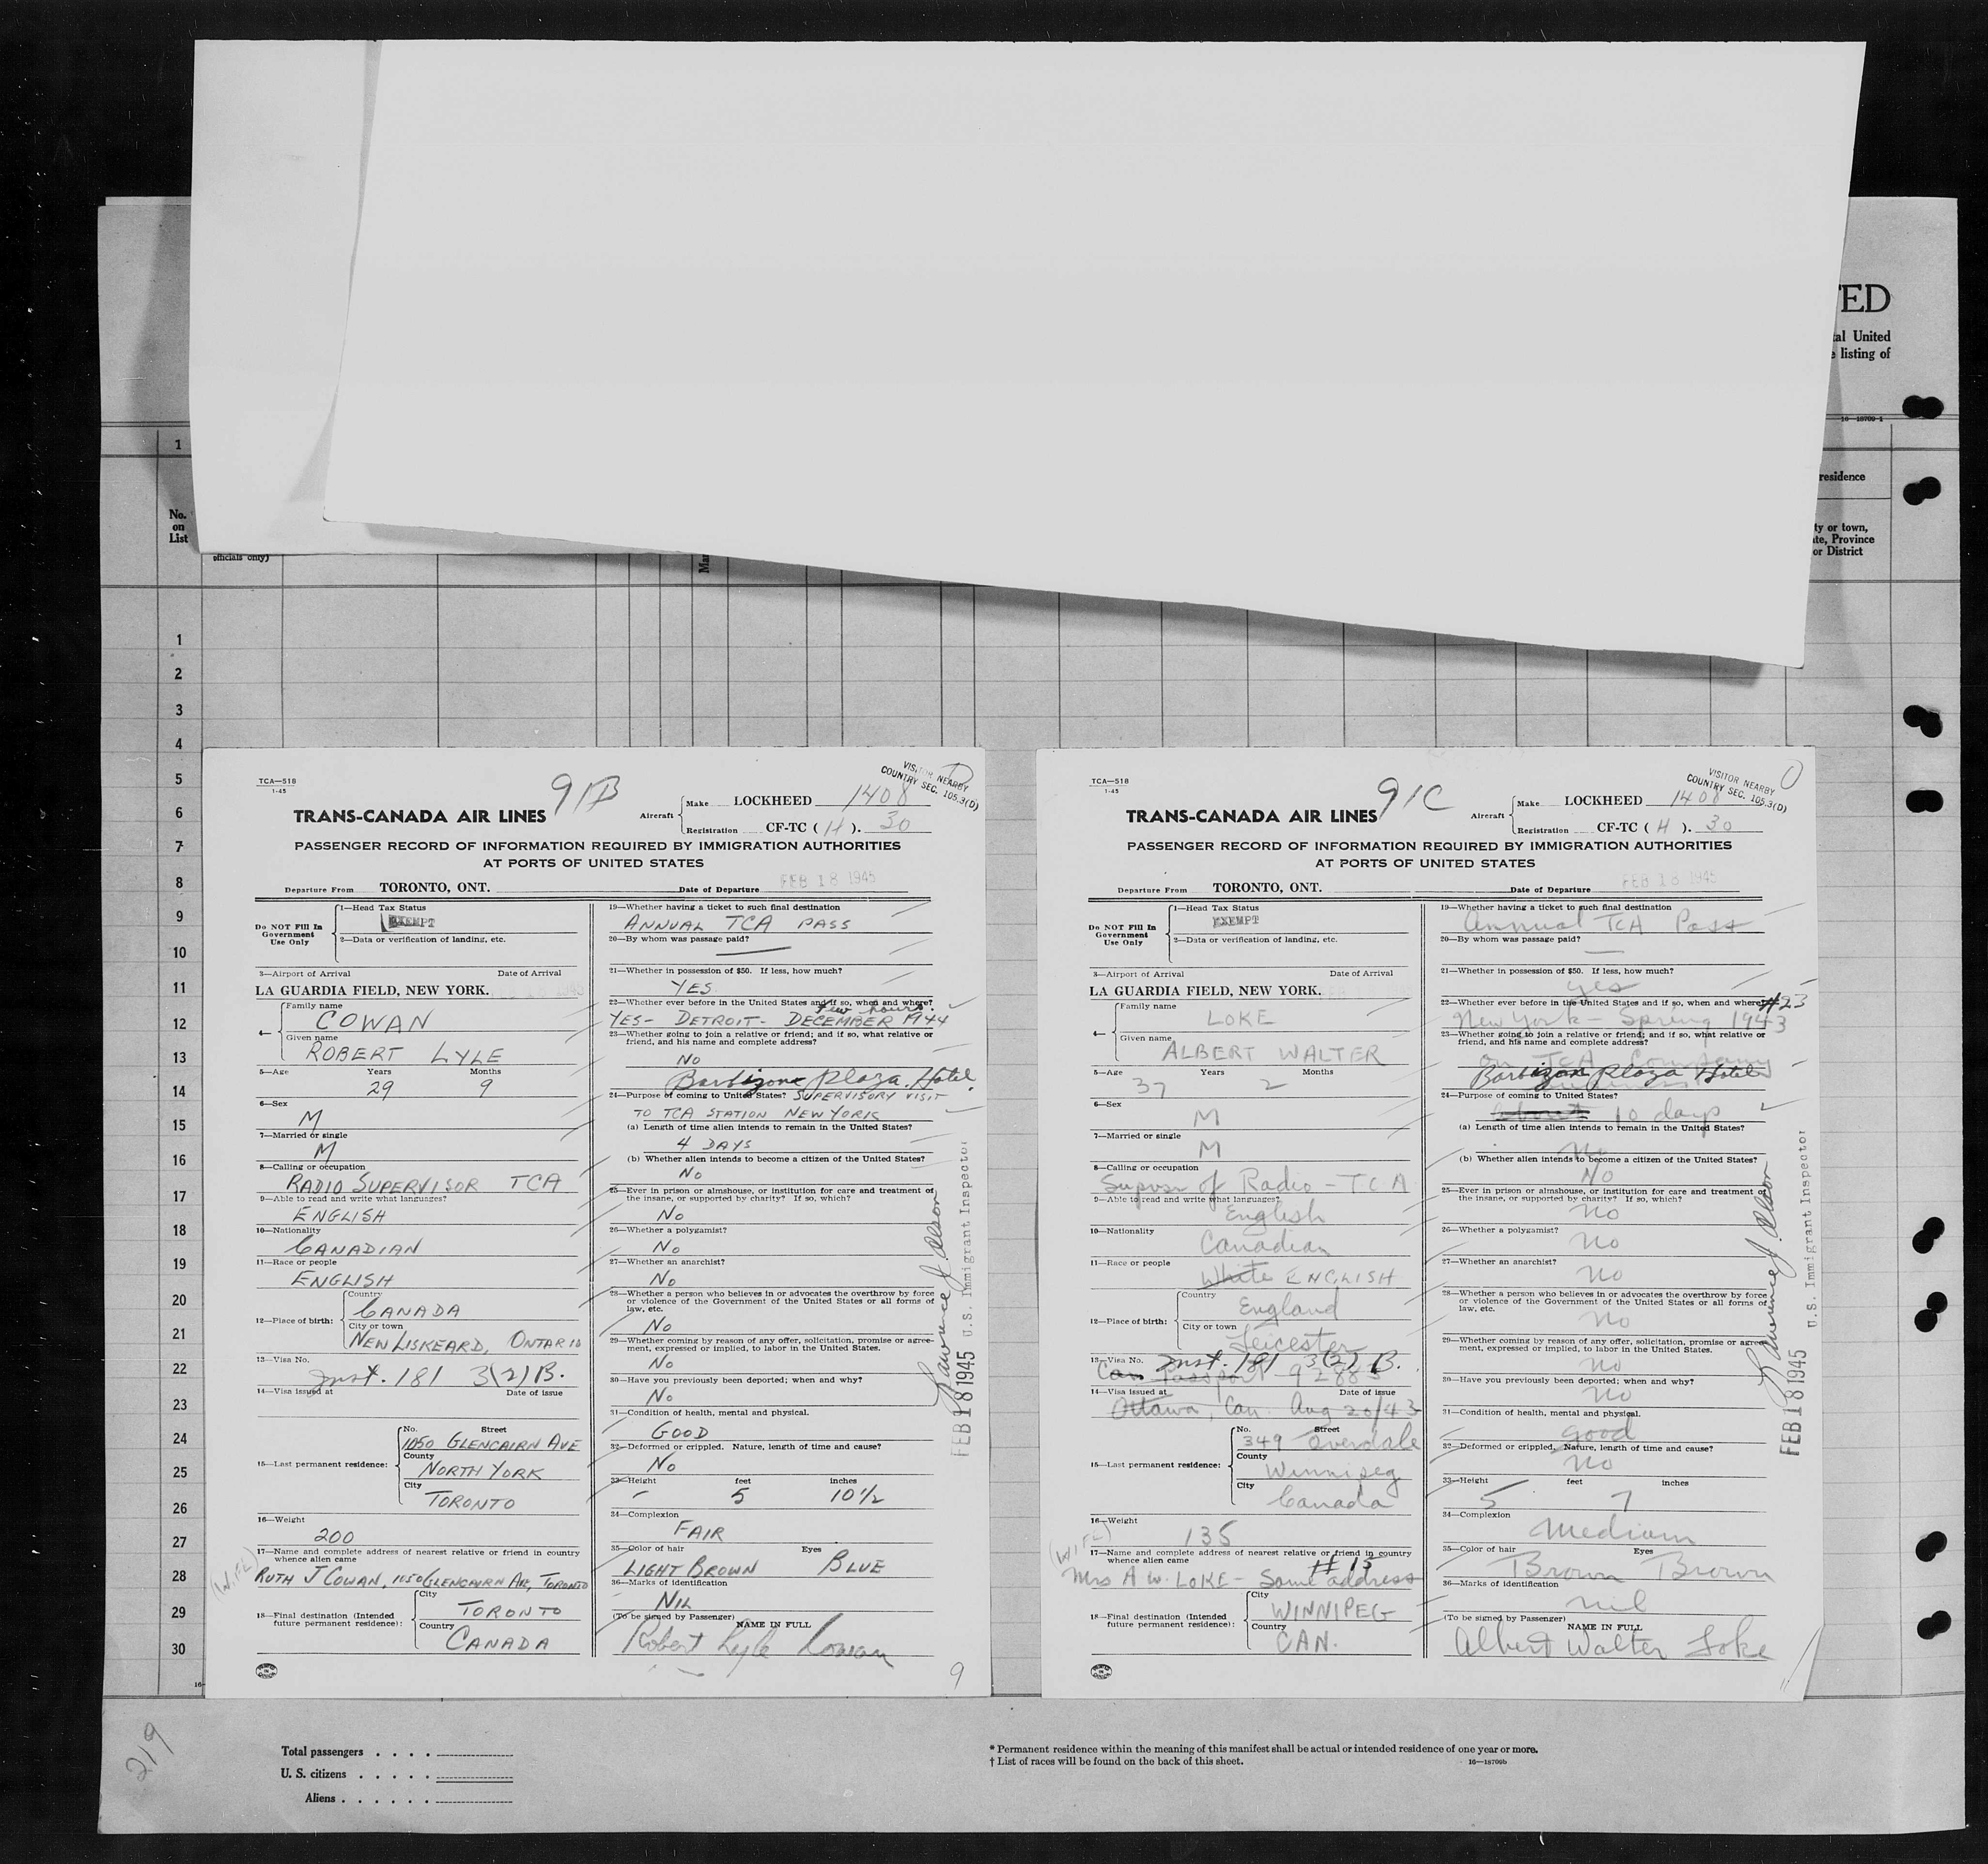 TED
al United
e listing of
16—18709-1
1
residence
No.
on
List
ty or town,
te, Province
or District
officials only)
Mar
1
2
3
4
5
6
7
8
9
10
11
12
13
14
15
16
17
18
19
20
21
22
23
24
25
26
27
28
29
30
TCA—518
1-45
91B
VISITOR NEARBY
COUNTRY SEC. 105.3(D)
TRANS-CANADA AIR LINES
Aircraft
Make LOCKHEED 1408
Registration CF-TC ( H ). 30
PASSENGER RECORD OF INFORMATION REQUIRED BY IMMIGRATION AUTHORITIES
AT PORTS OF UNITED STATES
Departure From TORONTO, ONT. Date of Departure FEB 18 1945
Do NOT Fill In
Government
Use Only
1—Head Tax Status
EXEMPT
2—Data or verification of landing, etc.
3—Airport of Arrival Date of Arrival
LA GUARDIA FIELD, NEW YORK.
4—
Family name
COWAN
Given name
ROBERT LYLE
5—Age Years Months
29 9
6—Sex
M
7—Married or single
M
8—Calling or occupation
RADIO SUPERVISOR TCA
9—Able to read and write what languages?
ENGLISH
10—Nationality
CANADIAN
11—Race or people
ENGLISH
12—Place of birth:
Country
CANADA
City or town
NEW LISKEARD, ONTARIO
13—Visa No.
Inst. 181 3(2)B.
14—Visa issued at Date of issue
15—Last permanent residence:
No. Street
1050 GLENCAIRN AVE
County
NORTH YORK
City
TORONTO
16—Weight
200
17—Name and complete address of nearest relative or friend in country
whence alien came
(WIFE)
RUTH J COWAN, 1050 GLENCAIRN AVE, TORONTO
18—Final destination (Intended
future permanent residence):
City
TORONTO
Country
CANADA
19—Whether having a ticket to such final destination
ANNUAL TCA PASS
20—By whom was passage paid?
21—Whether in possession of $50. If less, how much?
YES
22—Whether ever before in the United States and if so, when and where?
few hours.
YES- DETROIT- DECEMBER 1944
23—Whether going to join a relative or friend; and if so, what relative or
friend, and his name and complete address?
NO
Barbizone Plaza Hotel
24—Purpose of coming to United States? SUPERVISORY VISIT
TO TCA STATION NEW YORK
(a) Length of time alien intends to remain in the United States?
4 DAYS
(b) Whether alien intends to become a citizen of the United States?
NO
25—Ever in prison or almshouse, or institution for care and treatment of
the insane, or supported by charity? If so, which?
NO
26—Whether a polygamist?
NO
27—Whether an anarchist?
NO
28—Whether a person who believes in or advocates the overthrow by force
or violence of the Government of the United States or all forms of
law, etc.
NO
29—Whether coming by reason of any offer, solicitation, promise or agree-
ment, expressed or implied, to labor in the United States.
NO
30—Have you previously been deported; when and why?
NO
31—Condition of health, mental and physical.
GOOD
32—Deformed or crippled. Nature, length of time and cause?
NO
33—Height feet inches
5 10½
34—Complexion
FAIR
35—Color of hair Eyes
LIGHT BROWN BLUE
36—Marks of identification
NIL
(To be signed by Passenger) NAME IN FULL
Robert Lyle Cowan
9
FEB 18 1945 U.S. Immigrant Inspector
TCA—518
1-45
91C
VISITOR NEARBY
COUNTRY SEC. 105.3(D)
TRANS-CANADA AIR LINES
Aircraft
Make LOCKHEED 1408
Registration CF-TC ( H ). 30
PASSENGER RECORD OF INFORMATION REQUIRED BY IMMIGRATION AUTHORITIES
AT PORTS OF UNITED STATES
Departure From TORONTO, ONT. Date of Departure FEB 18 1945
Do NOT Fill In
Government
Use Only
1—Head Tax Status
EXEMPT
2—Data or verification of landing, etc.
3—Airport of Arrival Date of Arrival
LA GUARDIA FIELD, NEW YORK.
4—
Family name
LOKE
Given name
ALBERT WALTER
5—Age Years Months
37 2
6—Sex
M
7—Married or single
M
8—Calling or occupation
Supvsr of Radio - TCA
9—Able to read and write what languages?
English
10—Nationality
Canadian
11—Race or people
White ENGLISH
12—Place of birth:
Country
England
City or town
Leicester
13—Visa No. Inst. 181 3(2) B.
Can Passport
14—Visa issued at Date of issue
Ottawa, Can. Aug 20/43
15—Last permanent residence:
No. Street
349 Overdale
County
Winnipeg
City
Canada
16—Weight
135
17—Name and complete address of nearest relative or friend in country
whence alien came
(WIFE)
# 15
Mrs A W. LOKE - Same address
18—Final destination (Intended
future permanent residence):
City
WINNIPEG
Country
CAN.
19—Whether having a ticket to such final destination
Annual TCA Pass
20—By whom was passage paid?
21—Whether in possession of $50. If less, how much?
yes
22—Whether ever before in the United States and if so, when and where? #23
New York - Spring 1943
23—Whether going to join a relative or friend; and if so, what relative or
friend, and his name and complete address?
on TCA Company
Barbizon Plaza Hotel
24—Purpose of coming to United States?
about 10 days
(a) Length of time alien intends to remain in the United States?
No
(b) Whether alien intends to become a citizen of the United States?
NO
25—Ever in prison or almshouse, or institution for care and treatment of
the insane, or supported by charity? If so, which?
no
26—Whether a polygamist?
no
27—Whether an anarchist?
no
28—Whether a person who believes in or advocates the overthrow by force
or violence of the Government of the United States or all forms of
law, etc.
no
29—Whether coming by reason of any offer, solicitation, promise or agree-
ment, expressed or implied, to labor in the United States.
no
30—Have you previously been deported; when and why?
no
31—Condition of health, mental and physical.
good
32—Deformed or crippled. Nature, length of time and cause?
no
33—Height feet inches
5 7
34—Complexion
Medium
35—Color of hair Eyes
Brown Brown
36—Marks of identification
nil
(To be signed by Passenger) NAME IN FULL
Albert Walter Loke
11
FEB 18 1945 U.S. Immigrant Inspector
16—
219
Total passengers . . . .
U. S. citizens . . . . .
Aliens . . . . . .
* Permanent residence within the meaning of this manifest shall be actual or intended residence of one year or more.
† List of races will be found on the back of this sheet. 16—18709b